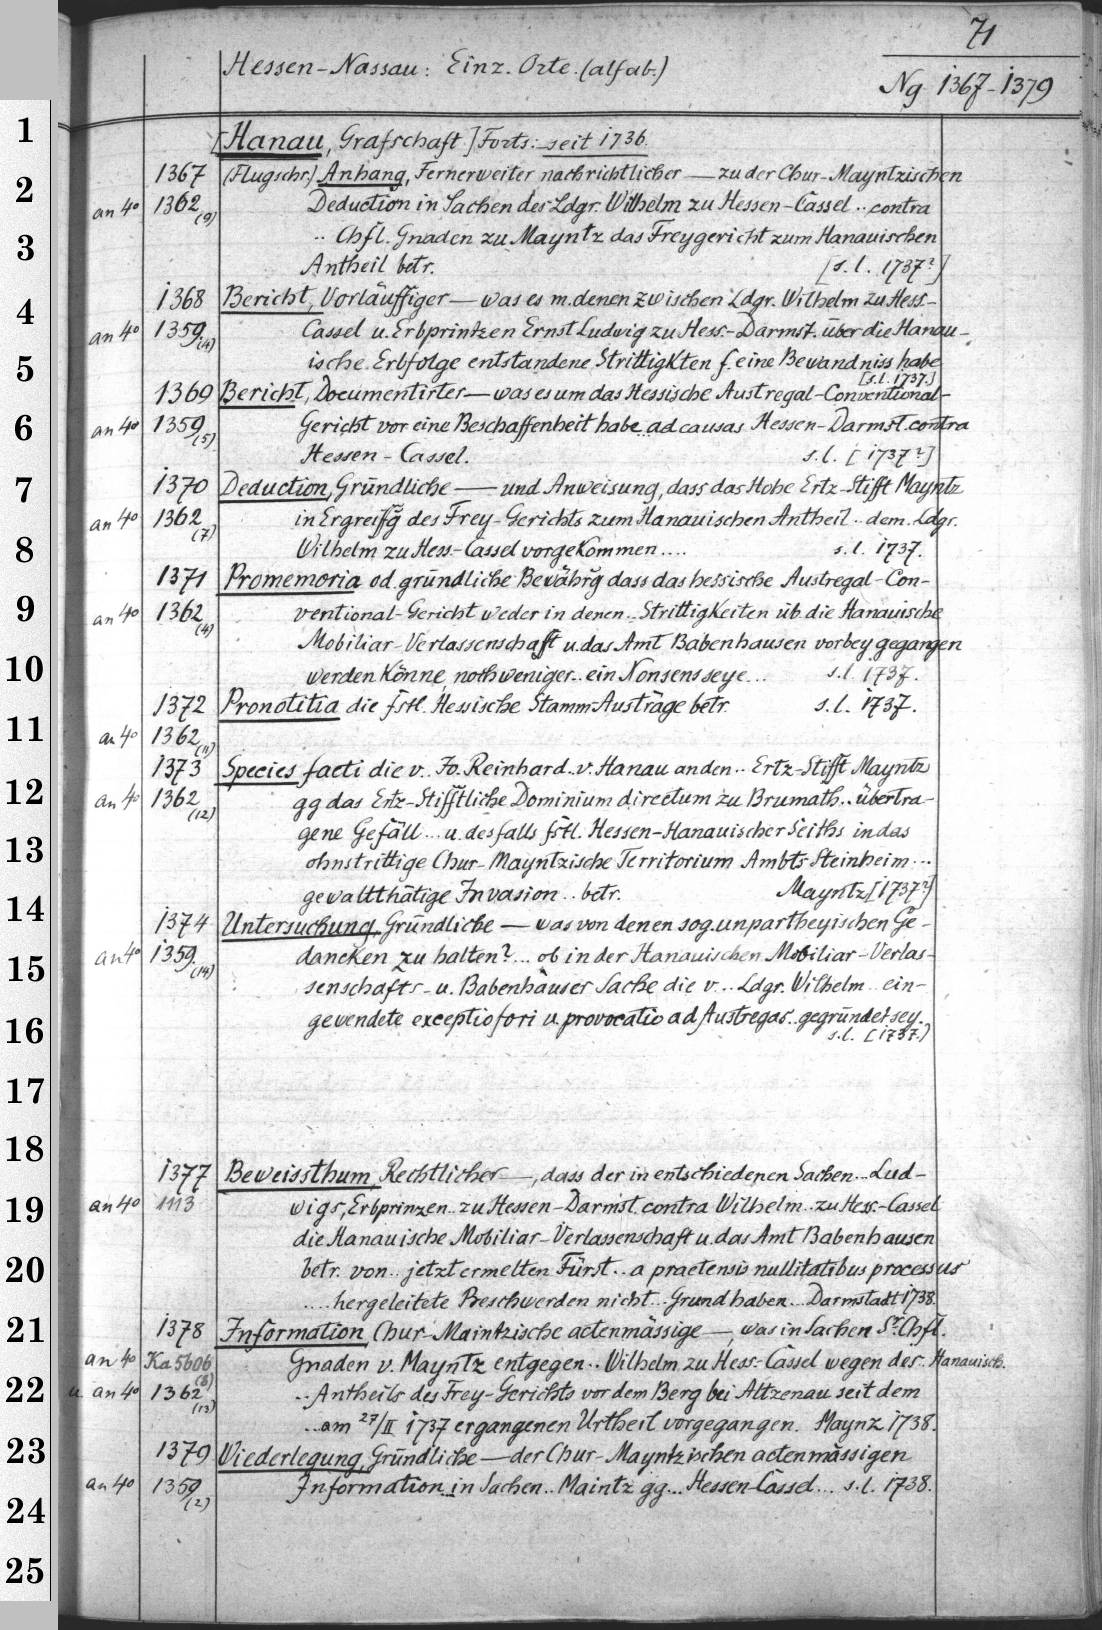 71
Hessen-Nassau: Einz. Orte. (alfab.)
Ng 1367-1379
1
[Hanau, Grafschaft.] Forts: seit 1736.
1367 (Flugschr.) Anhang, Fernerweiter nachrichtlicher — zu der Chur-Mayntzischen
2
an 4° 1362 (9) Deduction in Sachen des Ldgr. Wilhelm zu Hessen-Cassel .. contra
3
.. Chfl. Gnaden zu Mayntz das Freygericht zum Hanauischen
Antheil betr. [s.l. 1737?]
4
1368 Bericht, Vorläuffiger — was es m. denen zwischen Ldgr. Wilhelm zu Hess.-
an 4° 1359 (4) Cassel u. Erbprintzen Ernst Ludwig zu Hess.-Darmst. über die Hanau-
5
ische Erbfolge entstandene Strittigkten f. eine Bewandniss habe
[s.l. 1737.]
1369 Bericht, Documentirter — was es um das Hessische Austregal-Conventional-
6
an 4° 1359 (5) Gericht vor eine Beschaffenheit habe .. ad causas Hessen-Darmst. contra
Hessen-Cassel. s.l. [1737?]
7
1370 Deduction, Gründliche — und Anweisung, dass das Hohe Ertz-Stifft Mayntz
an 4° 1362 (7) in Ergreiffg des Frey-Gerichts zum Hanauischen Antheil .. dem Ldgr.
8
Wilhelm zu Hess-Cassel vorgekommen .... s.l. 1737.
1371 Promemoria od. gründliche Bewährg dass das hessische Austregal-Con-
9
an 4° 1362 (4) ventional-Gericht weder in denen .. Strittigkeiten üb. die Hanauische
Mobiliar-Verlassenschafft u. das Amt Babenhausen vorbey gegangen
10
werden könne, noch weniger .. ein Nonsens seye ... s.l. 1737.
1372 Pronotitia die fstl. Hessische Stamm-Austräge betr. s.l. 1737.
11
an 4° 1362 (11)
1373 Species facti die v. Jo. Reinhard .. v. Hanau an den .. Ertz-Stifft Mayntz
12
an 4° 1362 (12) gg das Ertz-Stifftliche Dominium directum zu Brumath .. übertra-
gene Gefäll ... u. desfalls fstl. Hessen-Hanauischer Seiths in das
13
ohnstrittige Chur-Mayntzische Territorium Ambts Steinheim ...
gewaltthätige Invasion .. betr. Mayntz [1737?]
14
1374 Untersuchung, Gründliche — was von denen sog. unpartheyischen Ge-
an 4° 1359 (14) dancken zu halten? ... ob in der Hanauischen Mobiliar-Verlas-
15
senschafts- u. Babenhäuser Sache die v. .. Ldgr. Wilhelm .. ein-
16
gewendete exceptio fori u. provocatio ad Austregas .. gegründet sey.
s.l. [1737.]
17
18
1377 Beweissthum, Rechtlicher —, dass der in entschiedenen Sachen ... Lud-
19
an 4° 1113 wigs, Erbprinzen .. zu Hessen-Darmst. contra Wilhelm .. zu Hess.-Cassel
die Hanauische Mobiliar-Verlassenschaft u. das Amt Babenhausen
20
betr. von .. jetzt ermelten Fürst .. a praetensis nullitatibus processus
.... hergeleitete Beschwerden nicht .. Grund haben ... Darmstadt 1738.
21
1378 Information, Chur-Maintzische actenmässige —, was in Sachen Sr. Chfl.
an 4° Ka 5606 (8) Gnaden v. Mayntz entgegen .. Wilhelm zu Hess.-Cassel wegen des Hanauisch.
22
u. an 4° 1362 (13) .. Antheils des Frey-Gerichts vor dem Berg bei Altzenau seit dem
.. am 27/II 1737 ergangenen Urtheil vorgegangen. Maynz 1738.
23
1379 Wiederlegung, Gründliche — der Chur-Mayntzischen actenmässigen
an 4° 1359 (2) Information in Sachen .. Maintz gg ... Hessen-Cassel ... s.l. 1738.
24
25